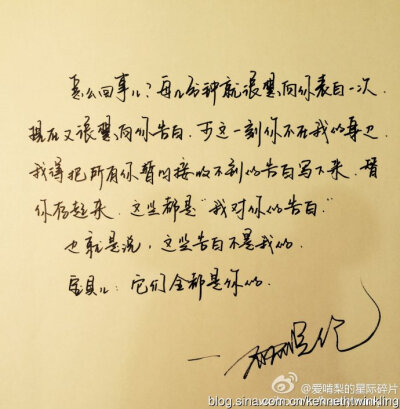 怎么回事儿？每几分钟就很想向你表白一次.
现在又很想向你告白. 可这一刻你不在我的身边
我得把所有你暂时接收不到的告白写下来. 替
你存起来. 这些都是“我对你的告白.”
也就是说, 这些告白不是我的.
宝贝儿: 它们全都是你的.
@爱啃梨的星际碎片
blog.sina.com.cn/kennethtwinkling